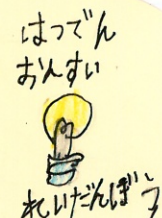 はつでん
おんすい
れいだんぼう